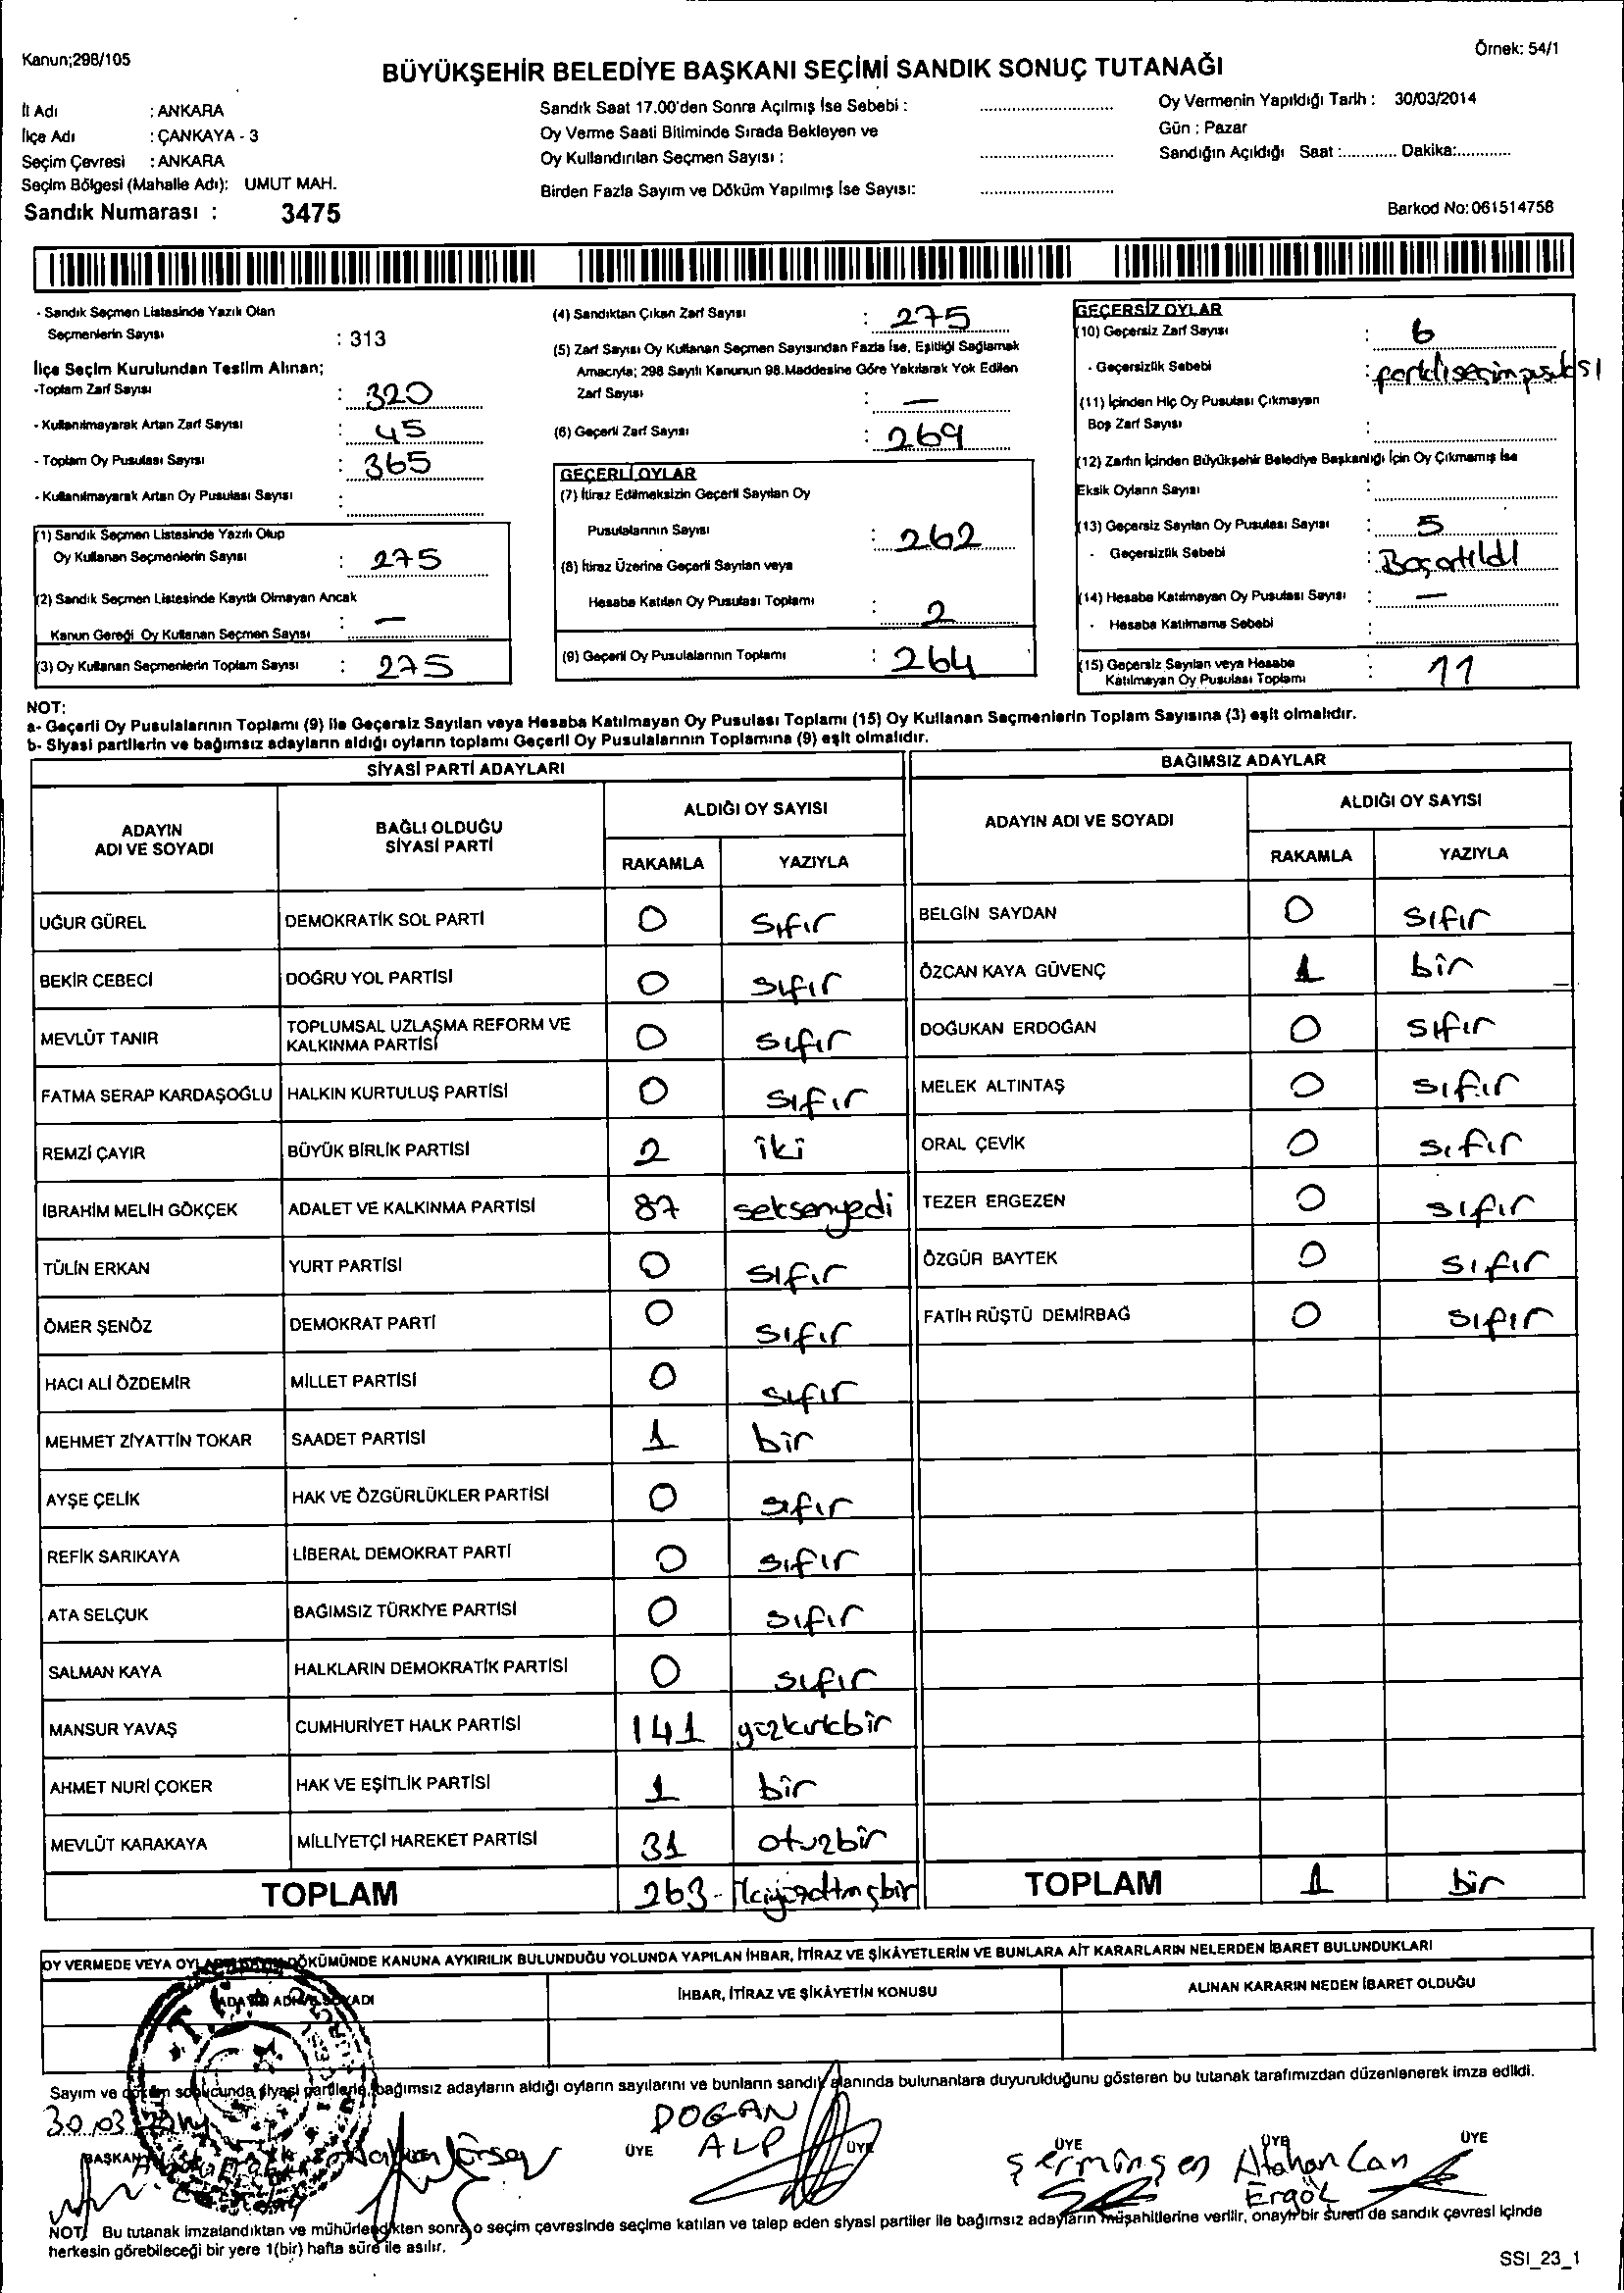 Kanun;298/105
Örnek: 54/1
BÜYÜKŞEHİR BELEDİYE BAŞKANI SEÇİMİ SANDIK SONUÇ TUTANAĞI
İl Adı : ANKARA
İlçe Adı : ÇANKAYA - 3
Seçim Çevresi : ANKARA
Seçim Bölgesi (Mahalle Adı): UMUT MAH.
Sandık Numarası : 3475
Sandık Saat 17.00'den Sonra Açılmış İse Sebebi :
Oy Verme Saati Bitiminde Sırada Bekleyen ve
Oy Kullandırılan Seçmen Sayısı :
Birden Fazla Sayım ve Döküm Yapılmış İse Sayısı:
Oy Vermenin Yapıldığı Tarih : 30/03/2014
Gün : Pazar
Sandığın Açıldığı Saat :............ Dakika:............
Barkod No: 061514758
- Sandık Seçmen Listesinde Yazılı Olan
Seçmenlerin Sayısı : 313
İlçe Seçim Kurulundan Teslim Alınan;
-Toplam Zarf Sayısı : 320
- Kullanılmayarak Artan Zarf Sayısı : 45
- Toplam Oy Pusulası Sayısı : 365
- Kullanılmayarak Artan Oy Pusulası Sayısı :
(1) Sandık Seçmen Listesinde Yazılı Olup
Oy Kullanan Seçmenlerin Sayısı : 275
(2) Sandık Seçmen Listesinde Kayıtlı Olmayan Ancak
Kanun Gereği Oy Kullanan Seçmen Sayısı : —
(3) Oy Kullanan Seçmenlerin Toplam Sayısı : 275
(4) Sandıktan Çıkan Zarf Sayısı : 275
(5) Zarf Sayısı Oy Kullanan Seçmen Sayısından Fazla İse, Eşitliği Sağlamak
Amacıyla; 298 Sayılı Kanunun 98.Maddesine Göre Yakılarak Yok Edilen
Zarf Sayısı : —
(6) Geçerli Zarf Sayısı : 269
GEÇERLİ OYLAR
(7) İtiraz Edilmeksizin Geçerli Sayılan Oy
Pusulalarının Sayısı : 262
(8) İtiraz Üzerine Geçerli Sayılan veya
Hesaba Katılan Oy Pusulası Toplamı : 2
(9) Geçerli Oy Pusulalarının Toplamı : 264
GEÇERSİZ OYLAR
(10) Geçersiz Zarf Sayısı : 6
- Geçersizlik Sebebi :
(11) İçinden Hiç Oy Pusulası Çıkmayan
Boş Zarf Sayısı :
(12) Zarfın İçinden Büyükşehir Belediye Başkanlığı İçin Oy Çıkmamış İse
Eksik Oyların Sayısı :
(13) Geçersiz Sayılan Oy Pusulası Sayısı : 5
- Geçersizlik Sebebi : Boş atıldı
(14) Hesaba Katılmayan Oy Pusulası Sayısı : —
- Hesaba Katılmama Sebebi :
(15) Geçersiz Sayılan veya Hesaba
Katılmayan Oy Pusulası Toplamı : 11
NOT:
a- Geçerli Oy Pusulalarının Toplamı (9) ile Geçersiz Sayılan veya Hesaba Katılmayan Oy Pusulası Toplamı (15) Oy Kullanan Seçmenlerin Toplam Sayısına (3) eşit olmalıdır.
b- Siyasi partilerin ve bağımsız adayların aldığı oyların toplamı Geçerli Oy Pusulalarının Toplamına (9) eşit olmalıdır.
SİYASİ PARTİ ADAYLARI
ADAYIN ADI VE SOYADI
BAĞLI OLDUĞU SİYASİ PARTİ
ALDIĞI OY SAYISI
RAKAMLA YAZIYLA
UĞUR GÜREL DEMOKRATİK SOL PARTİ 0 sıfır
BEKİR CEBECİ DOĞRU YOL PARTİSİ 0 sıfır
MEVLÜT TANIR TOPLUMSAL UZLAŞMA REFORM VE KALKINMA PARTİSİ 0 sıfır
FATMA SERAP KARDAŞOĞLU HALKIN KURTULUŞ PARTİSİ 0 sıfır
REMZİ ÇAYIR BÜYÜK BİRLİK PARTİSİ 2 iki
İBRAHİM MELİH GÖKÇEK ADALET VE KALKINMA PARTİSİ 87 seksenyedi
TÜLİN ERKAN YURT PARTİSİ 0 sıfır
ÖMER ŞENÖZ DEMOKRAT PARTİ 0 sıfır
HACI ALİ ÖZDEMİR MİLLET PARTİSİ 0 sıfır
MEHMET ZİYATTİN TOKAR SAADET PARTİSİ 1 bir
AYŞE ÇELİK HAK VE ÖZGÜRLÜKLER PARTİSİ 0 sıfır
REFİK SARIKAYA LİBERAL DEMOKRAT PARTİ 0 sıfır
ATA SELÇUK BAĞIMSIZ TÜRKİYE PARTİSİ 0 sıfır
SALMAN KAYA HALKLARIN DEMOKRATİK PARTİSİ 0 sıfır
MANSUR YAVAŞ CUMHURİYET HALK PARTİSİ 141 yüzkırkbir
AHMET NURİ ÇOKER HAK VE EŞİTLİK PARTİSİ 1 bir
MEVLÜT KARAKAYA MİLLİYETÇİ HAREKET PARTİSİ 31 otuzbir
TOPLAM 263 - ikiyüzaltmışbir
BAĞIMSIZ ADAYLAR
ADAYIN ADI VE SOYADI
ALDIĞI OY SAYISI
RAKAMLA YAZIYLA
BELGİN SAYDAN 0 sıfır
ÖZCAN KAYA GÜVENÇ 1 bir
DOĞUKAN ERDOĞAN 0 sıfır
MELEK ALTINTAŞ 0 sıfır
ORAL ÇEVİK 0 sıfır
TEZER ERGEZEN 0 sıfır
ÖZGÜR BAYTEK 0 sıfır
FATİH RÜŞTÜ DEMİRBAĞ 0 sıfır
TOPLAM 1 bir
OY VERMEDE VEYA DÖKÜMÜNDE KANUNA AYKIRILIK BULUNDUĞU YOLUNDA YAPILAN İHBAR, İTİRAZ VE ŞİKÂYETLERİN VE BUNLARA AİT KARARLARIN NELERDEN İBARET BULUNDUKLARI
İHBAR, İTİRAZ VE ŞİKÂYETİN KONUSU
ALINAN KARARIN NEDEN İBARET OLDUĞU
Sayım ve döküm sonucunda siyasi partilerle, bağımsız adayların aldığı oyların sayılarını ve bunların sandık alanında bulunanlara duyurulduğunu gösteren bu tutanak tarafımızdan düzenlenerek imza edildi.
30.03.2014
BAŞKAN
ÜYE DOĞAN ALP
ÜYE
ÜYE
ÜYE Atahan Can Ergöl
ÜYE
NOT: Bu tutanak imzalandıktan ve mühürlendikten sonra o seçim çevresinde seçime katılan ve talep eden siyasi partiler ile bağımsız adayların müşahitlerine verilir, onaylı bir sureti de sandık çevresi içinde
herkesin görebileceği bir yere 1(bir) hafta süre ile asılır.
SSI_23_1